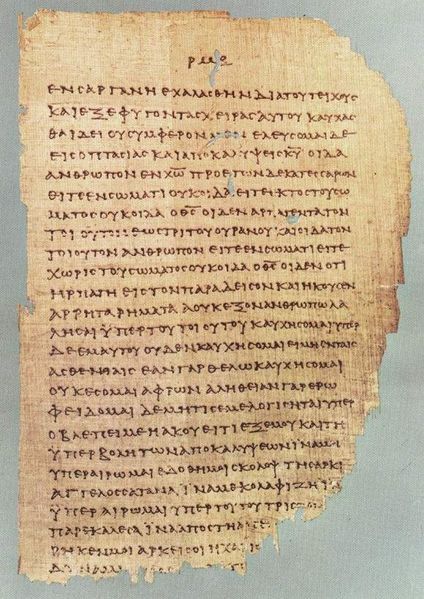 ΡΜϚ
ΕΝΣΑΡΓΑΝΗΕΧΑΛΑΣΘΗΝΔΙΑΤΟΥΤΕΙΧΟΥΣ
ΚΑΙΕΞΕΦΥΓΟΝΤΑΣΧΕΙΡΑΣΑΥΤΟΥΚΑΥΧΑΣ
ΘΑΙΔΕΙΟΥΣΥΜΦΕΡΟΝΜΕΝΕΛΕΥΣΟΜΑΙΔΕ
ΕΙΣΟΠΤΑΣΙΑΣΚΑΙΑΠΟΚΑΛΥΨΕΙΣΚ̅Υ̅ΟΙΔΑ
ΑΝΘΡΩΠΟΝΕΝΧ̅Ω̅ΠΡΟΕΤΩΝΔΕΚΑΤΕΣΣΑΡΩΝ
ΕΙΤΕΕΝΣΩΜΑΤΙΟΥΚΟΙΔΑΕΙΤΕΕΚΤΟΣΤΟΥΣΩ
ΜΑΤΟΣΟΥΚΟΙΔΑΟΘ̅Σ̅ΟΙΔΕΝΑΡΠΑΓΕΝΤΑΤΟΝ
ΤΟΙΟΥΤΟΝΕΩΣΤΡΙΤΟΥΟΥΡΑΝΟΥΚΑΙΟΙΔΑΤΟΝ
ΤΟΙΟΥΤΟΝΑΝΘΡΩΠΟΝΕΙΤΕΕΝΣΩΜΑΤΙΕΙΤΕ
ΧΩΡΙΣΤΟΥΣΩΜΑΤΟΣΟΥΚΟΙΔΑΟΘ̅Σ̅ΟΙΔΕΝΟΤΙ
ΗΡΠΑΓΗΕΙΣΤΟΝΠΑΡΑΔΕΙΣΟΝΚΑΙΗΚΟΥΣΕΝ
ΑΡΡΗΤΑΡΗΜΑΤΑΑΟΥΚΕΞΟΝΑΝΘΡΩΠΩΛΑ
ΛΗΣΑΙΥΠΕΡΤΟΥΤΟΙΟΥΤΟΥΚΑΥΧΗΣΟΜΑΙΥΠΕΡ
ΔΕΕΜΑΥΤΟΥΟΥΔΕΝΚΑΥΧΗΣΟΜΑΙΕΙΜΗΕΝΤΑΙΣ
ΑΣΘΕΝΕΙΑΙΣΕΑΝΓΑΡΘΕΛΩΚΑΥΧΗΣΟΜΑΙ
ΟΥΚΕΣΟΜΑΙΑΦΡΩΝΑΛΗΘΕΙΑΝΓΑΡΕΡΩ
ΦΕΙΔΟΜΑΙΔΕΜΗΤΙΣΕΜΕΛΟΓΙΣΗΤΑΙΥΠΕΡ
ΟΒΛΕΠΕΙΜΕΗΑΚΟΥΕΙΤΙΕΞΕΜΟΥΚΑΙΤΗ
ΥΠΕΡΒΟΛΗΤΩΝΑΠΟΚΑΛΥΨΕΩΝΙΝΑΜΗ
ΥΠΕΡΑΙΡΩΜΑΙΕΔΟΘΗΜΟΙΣΚΟΛΟΨΤΗΣΑΡΚΙ
ΑΓΓΕΛΟΣΣΑΤΑΝΑΙΝΑΜΕΚΟΛΑΦΙΖΗΙΝ
ΥΠΕΡΑΙΡΩΜΑΙΥΠΕΡΤΟΥΤΟΥΤΡΙΣ
ΠΑΡΕΚΑΛΕΣΑΙΝΑΑΠΟΣΤΗΑΠ
ΡΗΚΕΝΜΟΙΑΡΚΕΙΣΟΙΗΧΑΡΙΣ
ΔΥΝΑΜΙ